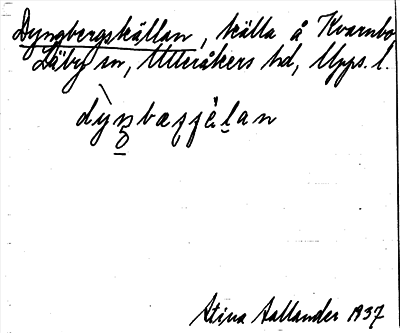 Dyngbergskällan, källa å Kvarnbo
Läby sn, Ulleråkers hd, Upps. l.
Stina Aallander 1937